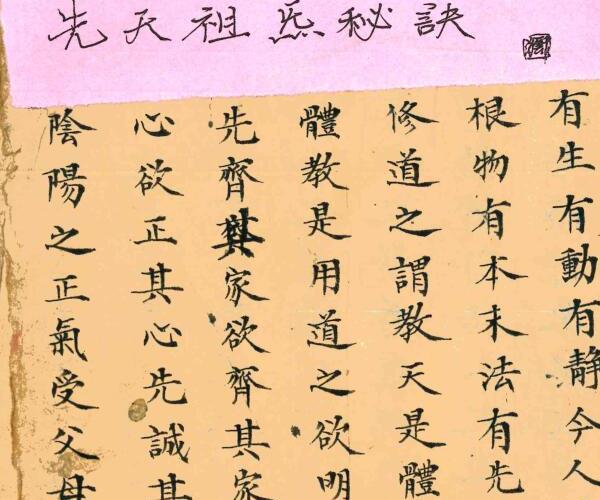 先天祖炁秘訣
有生有動有靜今人
根物有本末法有先
修道之謂教天是體
體教是用道之欲明
先齊其家欲齊其家
心欲正其心先誠其
陰陽之正氣受父母